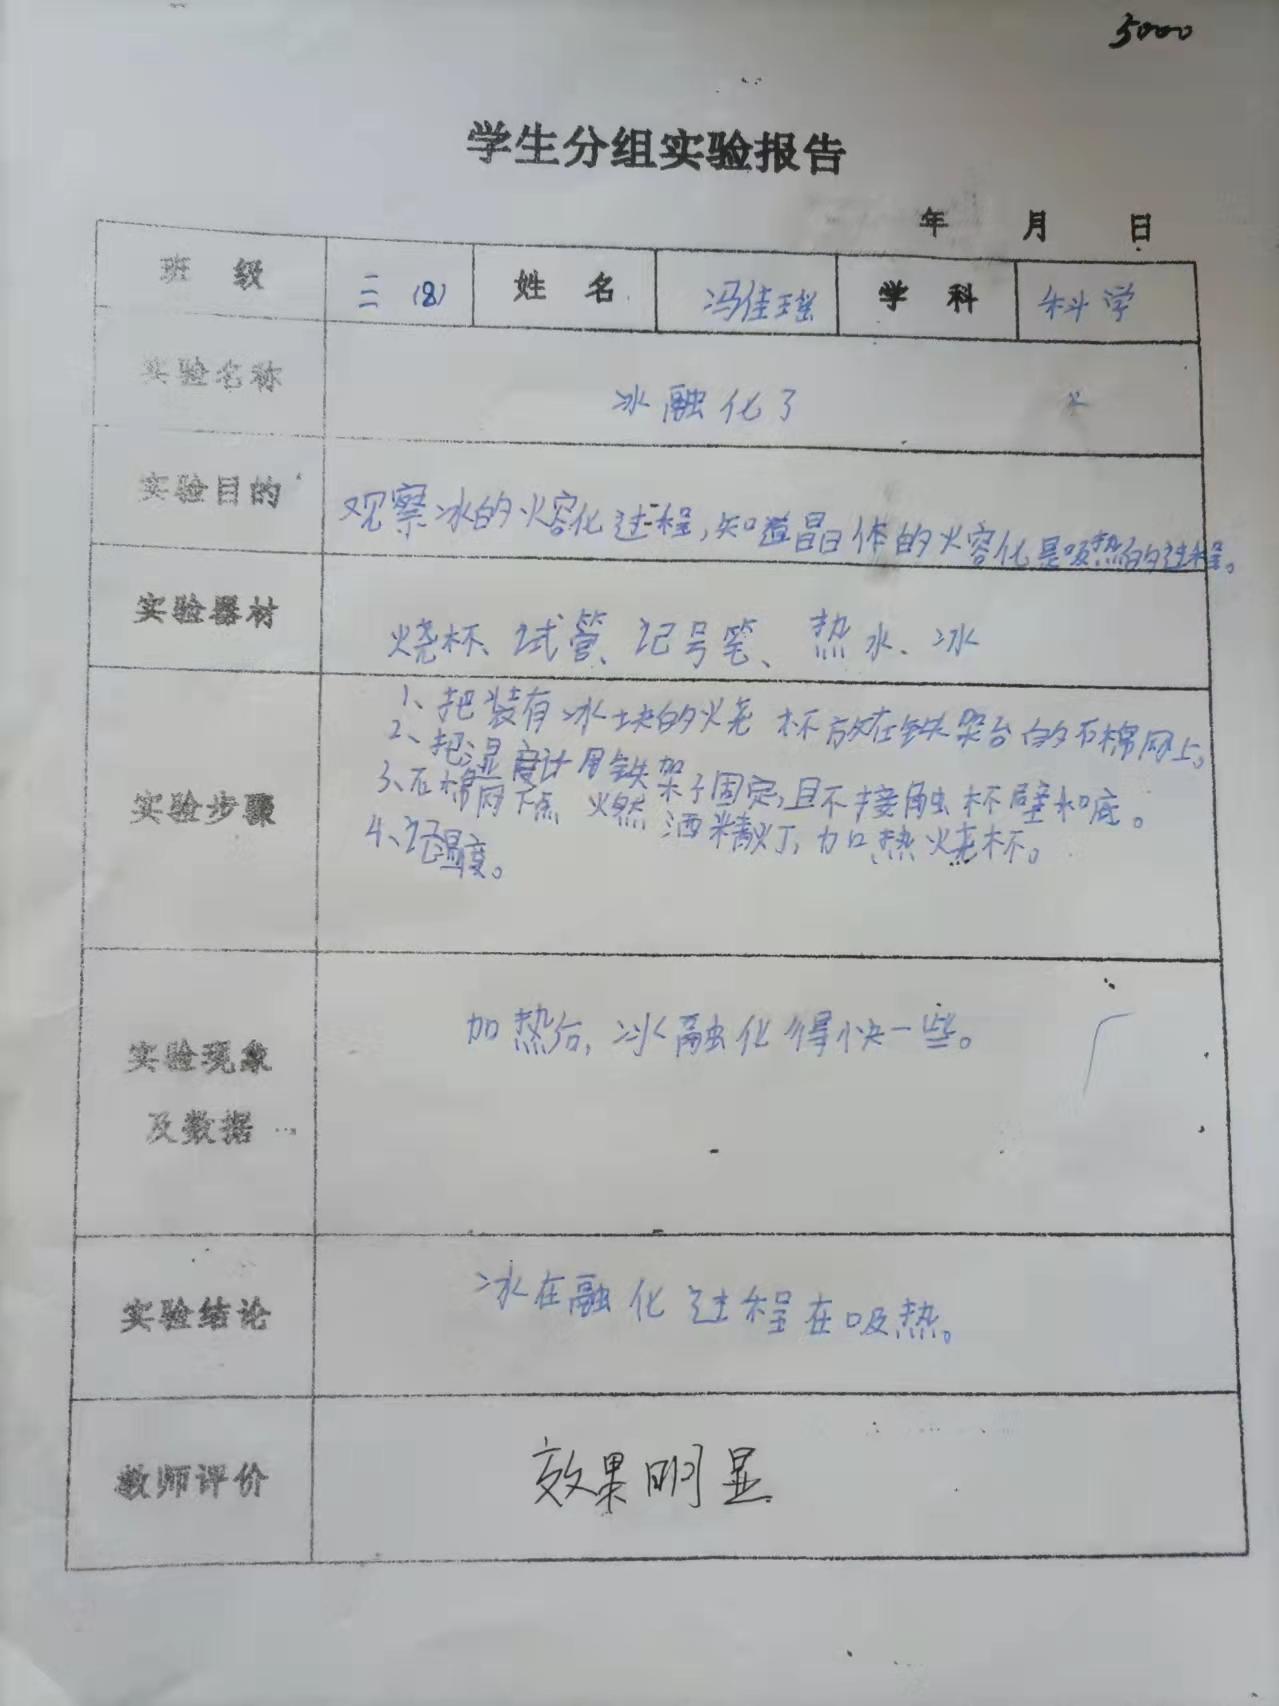 5000
学生分组实验报告
年 月 日
班 级 三(8) 姓 名 冯佳瑶 学 科 科学
实验名称 冰融化了
实验目的 观察冰的熔化过程,知道晶体的熔化是吸热的过程。
实验器材 烧杯、试管、记号笔、热水、冰
实验步骤
1、把装有冰块的烧杯放在铁架台的石棉网上。
2、把温度计用铁架子固定,且不接触杯壁和底。
3、石棉网下点燃酒精灯,加热烧杯。
4、记温度。
实验现象
及数据
加热后,冰融化得快一些。
实验结论 冰在融化过程在吸热。
教师评价 效果明显